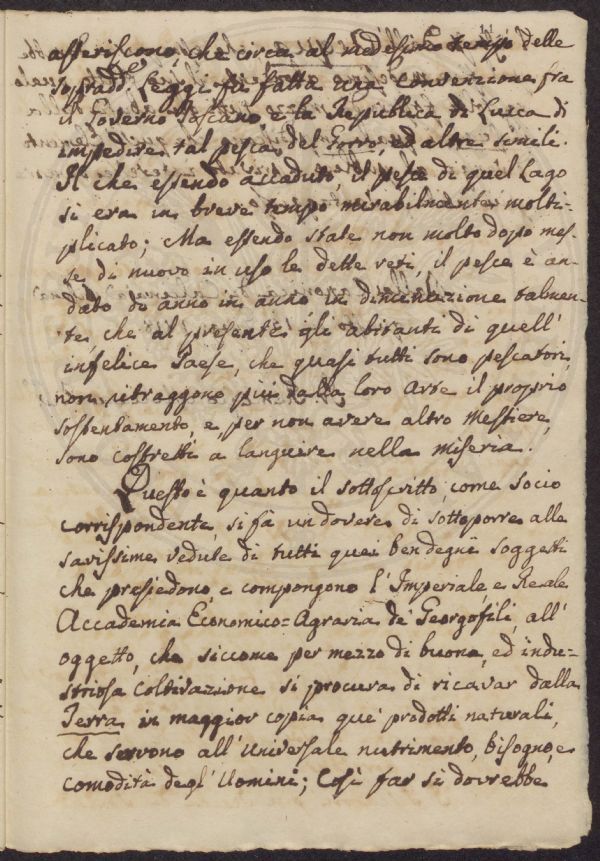 asseriscono, che circa al medesimo tempo delle
sopradd.e Leggi fù fatta una Convenzione fra
il Governo Toscano e la Republica di Lucca di
impedire tal pesca del Gorro ed altre simili.
Il che essendo accaduto, il pesce di quel Lago
si era in breve tempo mirabilmente molti-
plicato; Ma essendo state non molto dopo mes-
se di nuovo in uso le dette reti, il pesce è an-
dato di anno in anno in diminuzione talmen-
te, che al presente gli abitanti di quell'
infelice Paese, che quasi tutti sono pescatori,
non ritraggono più dalla loro Arte il proprio
sostentamento, e, per non avere altro Mestiere,
sono costretti a languire nella miseria.
Questo è quanto il sottoscritto, come socio
corrispondente, si fà un dovere di sottoporre alle
savissime vedute di tutti quei ben degni soggetti
che presiedono, e compongono l'Imperiale, e Reale
Accademia Economico=Agraria de' Georgofili, all'
oggetto, che siccome per mezzo di buona, ed indu-
striosa Coltivazione si procura di ricavar dalla
Terra in maggior copia que' prodotti naturali,
che servono all'Universale nutrimento, bisogno, e
comodità degl'Uomini; Così far si dovrebbe